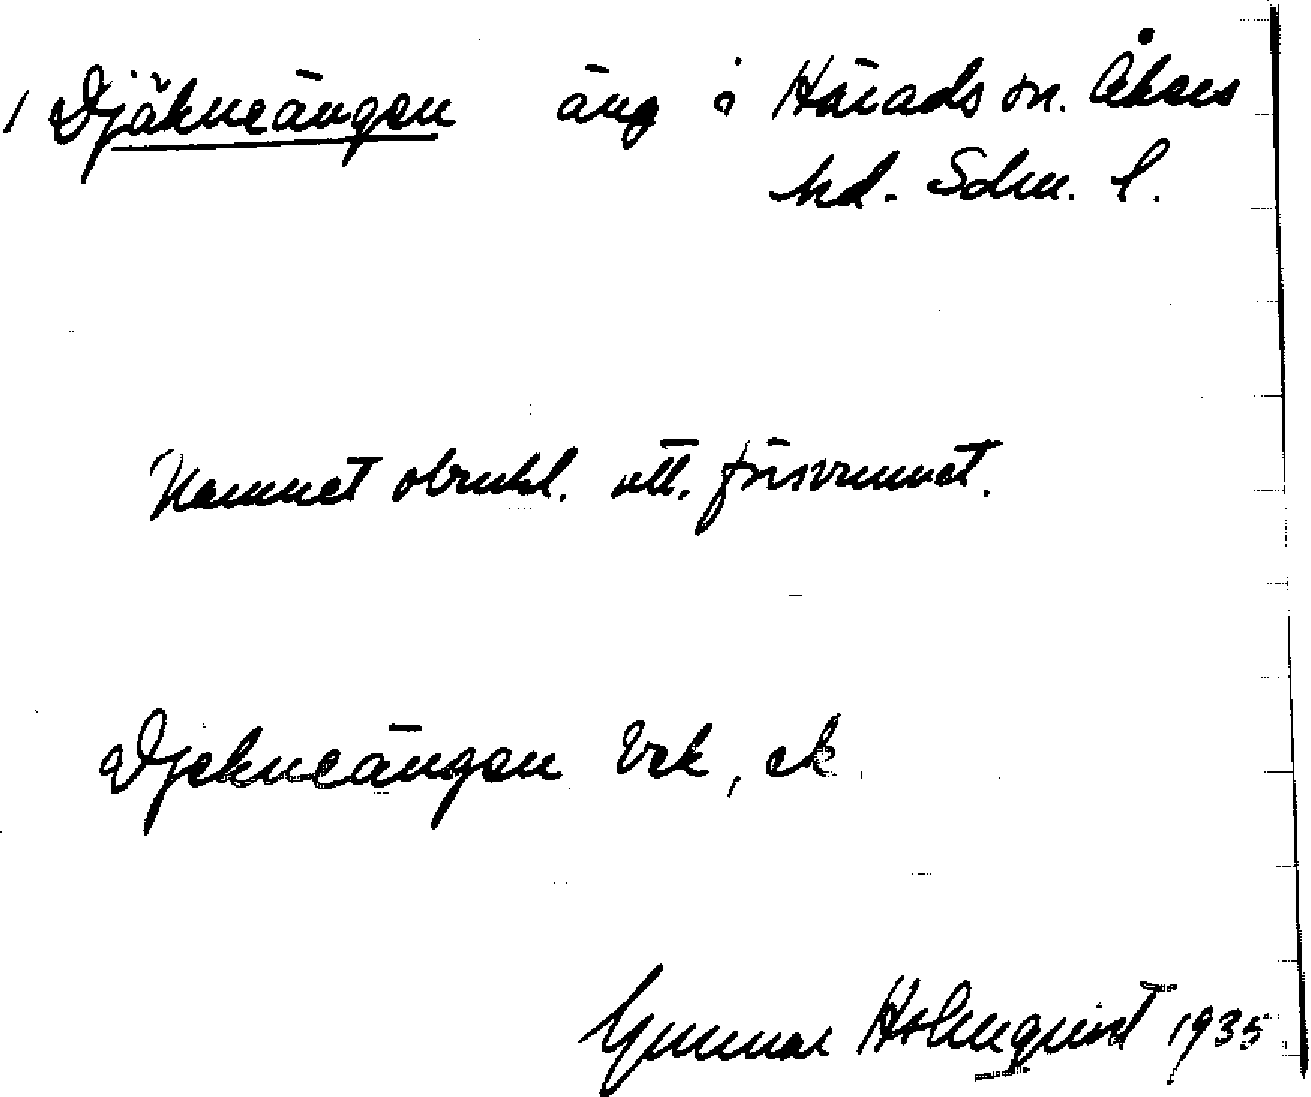 / Djäkneängen äng i Härads sn. Åkers
hd. Sdm. l.
Namnet obrukl. ell. försvunnet.
Djekneängen Eek, ek
Gunnar Holmqvist 1935